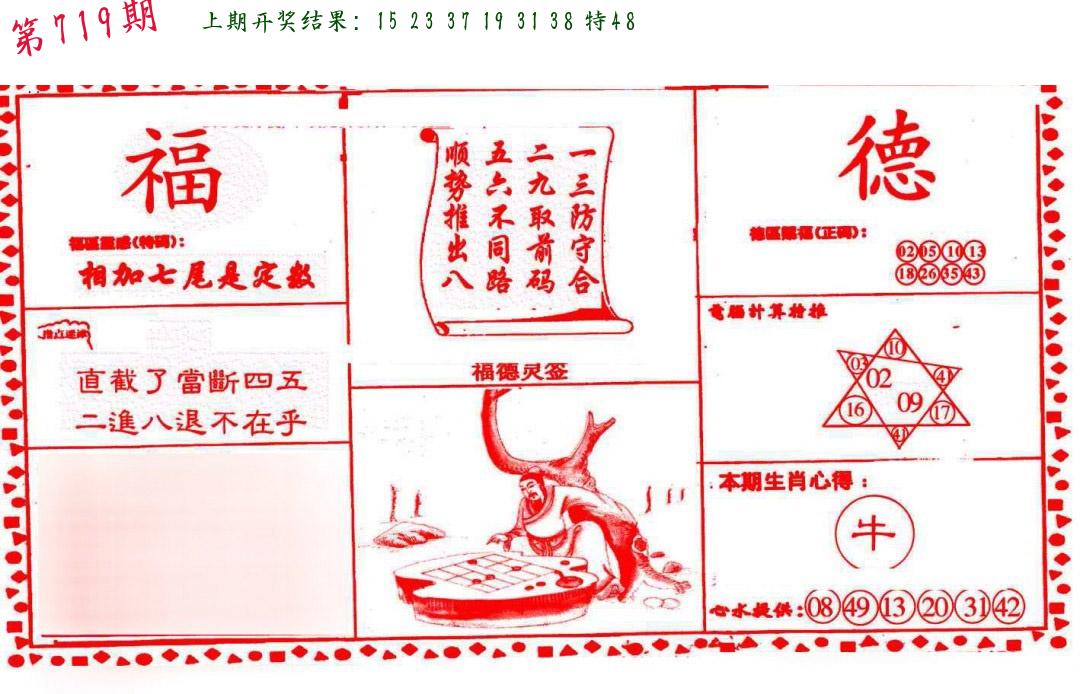 第719期
上期开奖结果: 15 23 37 19 31 38 特48
福
福區靈感(特碼):
相加七尾是定数
直截了當斷四五
二進八退不在乎
一三防守合
二九取前码
五六不同路
顺势推出八
福德灵签
德
德區賜福(正碼):
02 05 10 13
18 26 35 43
電腦計算检推
10
03 02 41
16 09 17
41
本期生肖心得:
牛
心水提供: 08 49 13 20 31 42